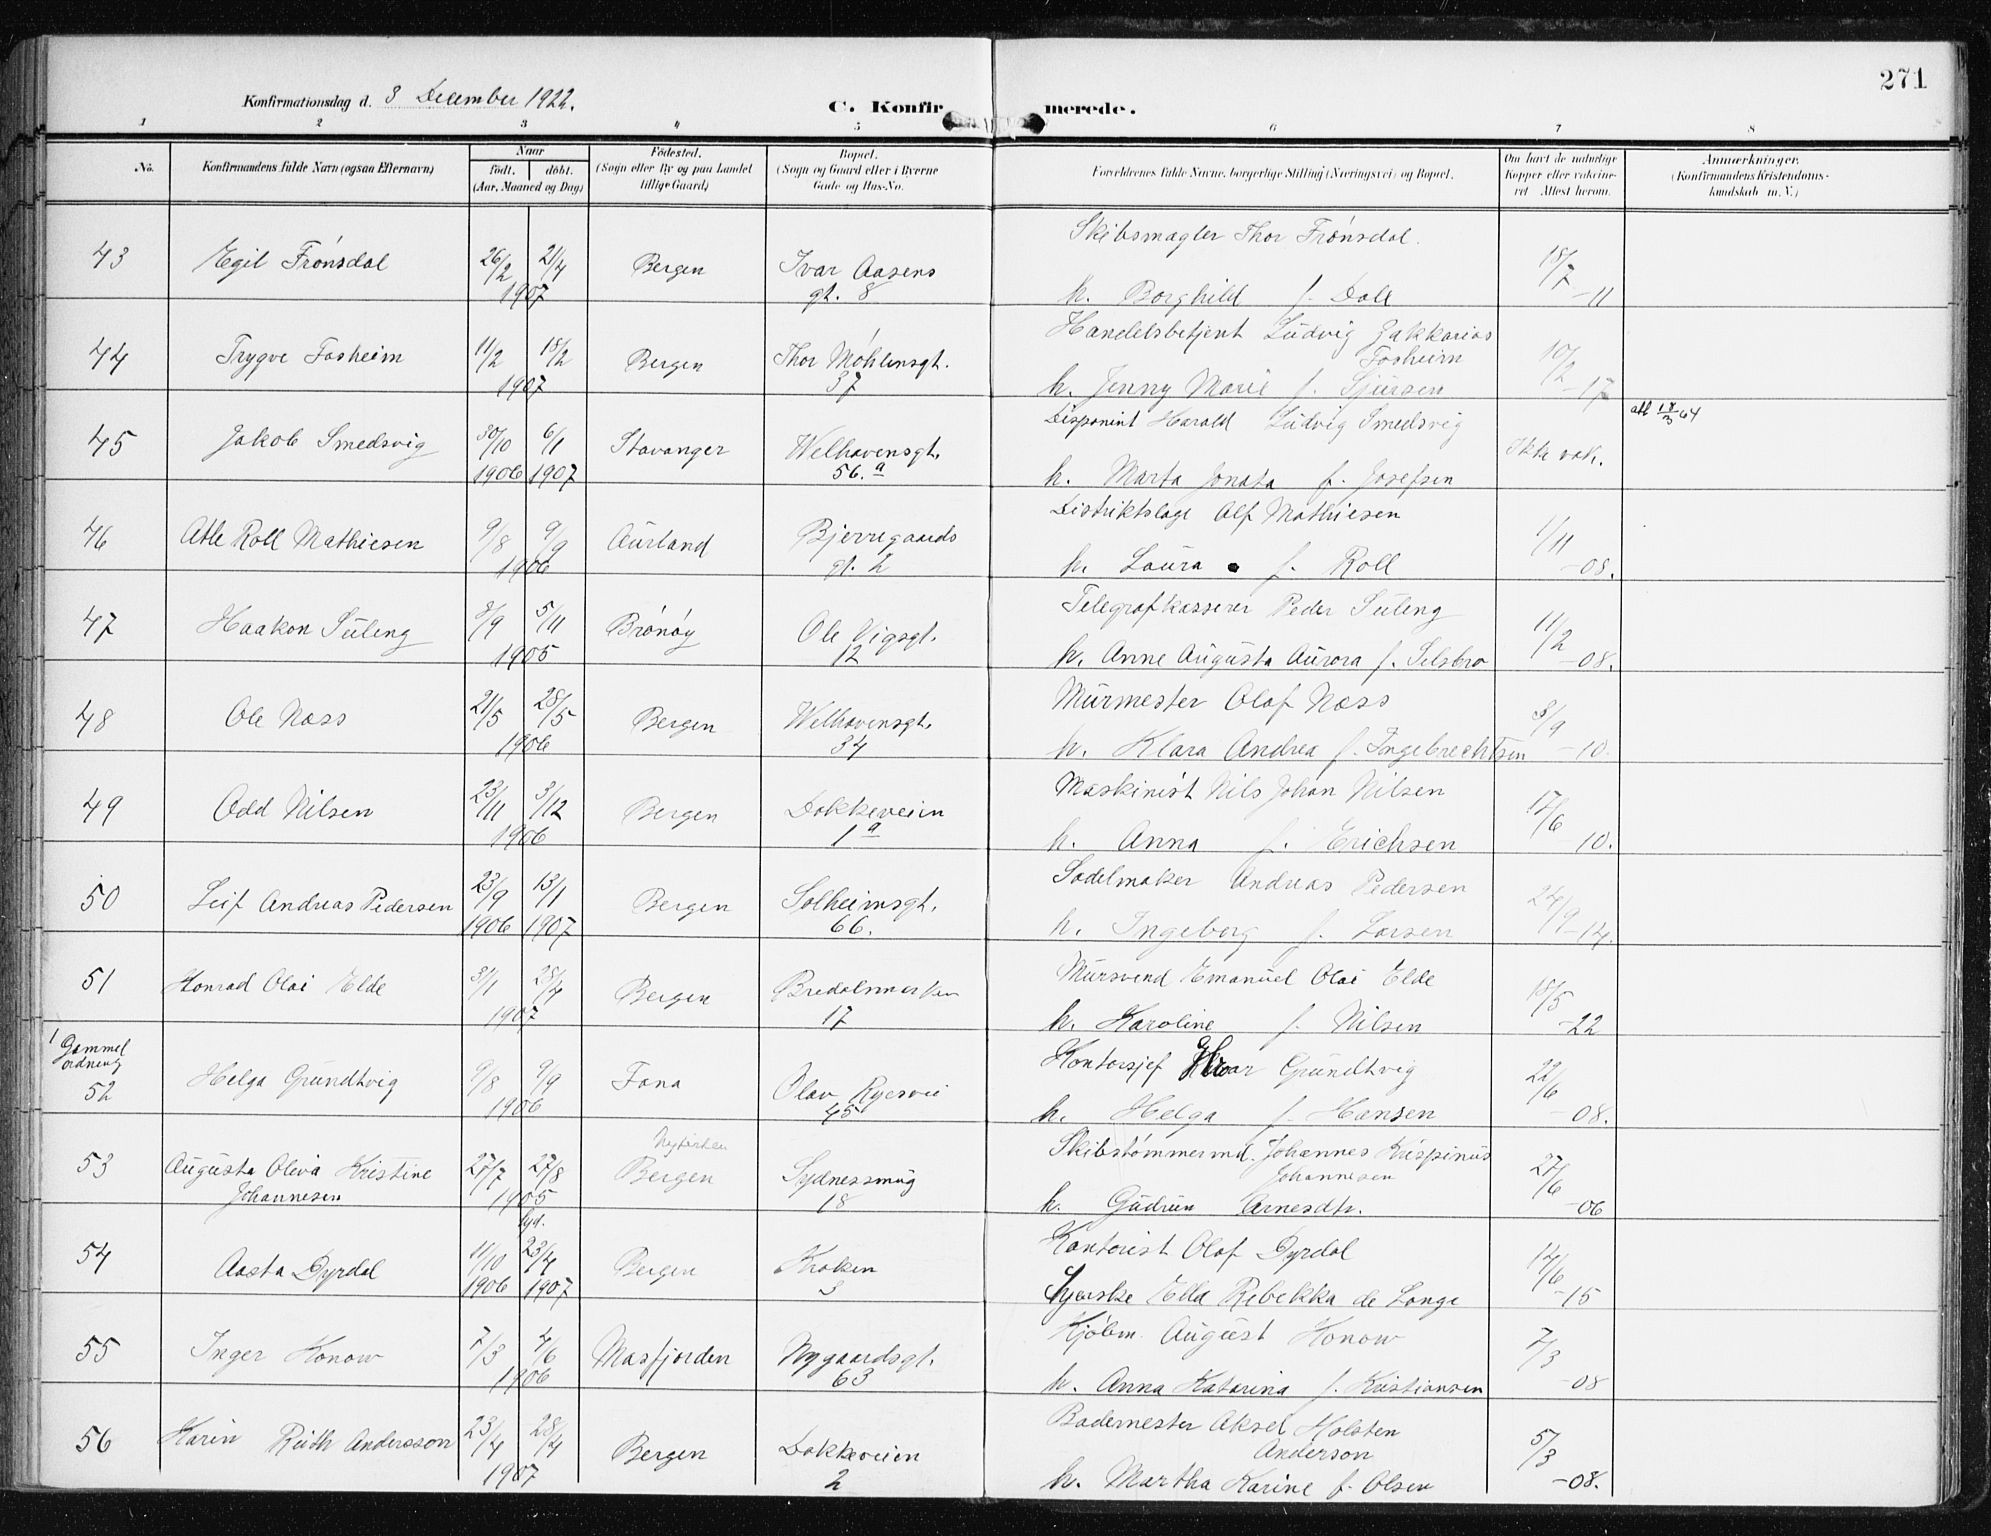 271
Konfirmationsdag d. 3 December 1922.
C. Konfirmerede.
1 2 3 4 5 6 7 8
No.
Konfirmandens fulde Navn (ogsaa Efternavn)
Naar
født. døbt.
(Aar, Maaned og Dag)
Fødested.
(Sogn eller By og paa Landet
tillige Gaard)
Bopæl.
(Sogn og Gaard eller i Byerne
Gade og Hus-No.
Forældrenes fulde Navne, borgerlige Stilling (Næringsvei) og Bopæl.
Om havt de naturlige
Kopper eller vakcine-
ret Attest herom.
Anmærkninger.
(Konfirmandens Kristendoms-
kundskab m. V.)
43 Egil Frønsdal 26/2 21/4 1907 Bergen Ivar Aasens gt. 8
Skibsmægler Thor Frønsdal.
h. Borghild f. Dall 18/7 -11
44 Trygve Fosheim 11/2 18/2 1907 Bergen Thor Møhlensgt. 37
Handelsbetjent Ludvig Zakkarias
Fosheim
h. Jenny Marie f. Sjursen 10/2 -17
45 Jakob Smedsvig 30/10 1906 6/1 1907 Stavanger Welhavensgt. 56.a
Disponent Harald Ludvig Smedsvig
h. Marta Jonata f. Josefsen Ikke vak.
att 18/3 64
46 Atle Roll Mathiesen 9/8 9/9 1906 Aurland Bjerregaards gt. 2
Distriktslæge Alf Mathiesen
h. Laura f. Roll 1/11 -08.
47 Haakon Suleng 8/9 5/11 1905 Brønøy Ole Vigsgt. 12
Telegrafkasserer Peder Suleng
h. Anne Augusta Aurora f. Selsbro 11/2 -08.
48 Ole Næss 21/5 28/5 1906 Bergen Welhavensgt. 34
Murmester Olaf Næss
h. Klara Andrea f. Ingebrechtsen 3/9 -10.
49 Odd Nilsen 23/11 3/12 1906 Bergen Dokkeveien 1a
Maskinist Nils Johan Nilsen
h. Anna f. Erichsen 17/6 -10.
50 Leif Andreas Pedersen 23/9 1906 13/1 1907 Bergen Solheimsgt. 66.
Sadelmaker Andreas Pedersen
h. Ingeborg f. Larsen 24/9 -14.
51 Konrad Olai Elde 31/1 28/4 1907 Bergen Bredalsmarken 17
Mursvend Emanuel Olai Elde
h. Karoline f. Nilsen 18/5 -22
1 Gammel
ordning
52 Helga Grundtvig 9/8 9/9 1906 Fana Olav Ryesvei 45
Kontorsjef Grundtvig
h. Helga f. Hansen 22/6 -08.
53 Augusta Oleva Kristine
Johannesen 27/7 27/8 1905 Nykirken Bergen Sydnessmug 18
Skibstømmermd. Johannes Krispinus
Johannesen
h. Gudrun Arnesdtr. 27/6 -06
54 Aasta Dyrdal 11/10 1906 23/4 1907 Bergen Kroken 3
Kontorist Olaf Dyrdal
Syerske Ella Rebekka de Lange 14/6 -15
55 Inger Konow 7/3 4/6 1906 Masfjorden Nygaardsgt. 63
Kjøbm. August Konow
h. Anna Katarina f. Kristiansen 7/3 -08
56 Karin Ruth Andersson 23/4 28/4 1907 Bergen Dokkeveien 2
Bademester Aksel Holsten
Anderson
h. Martha Karine f. Olsen 5/3 -08.